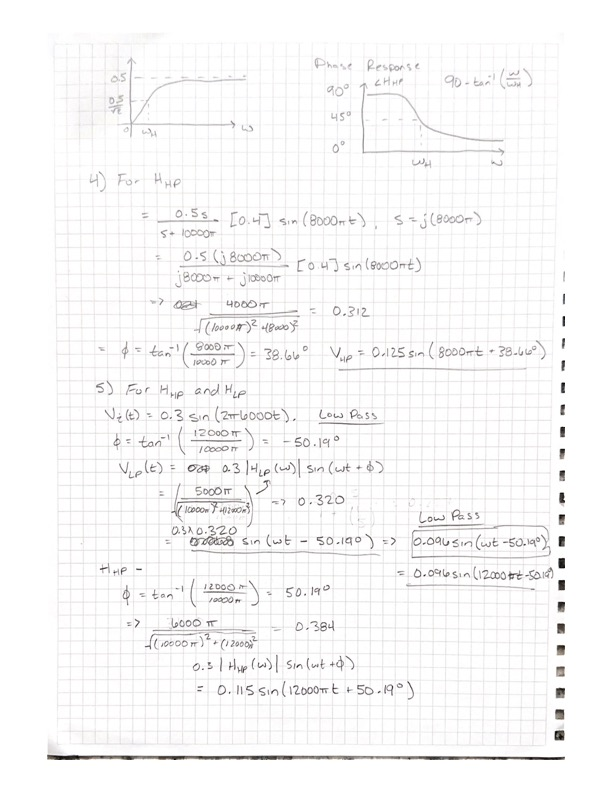 Phase Response
0.5
∠H_HP
90°
90 - tan⁻¹(ω/ω_H)
0.5/√2
45°
0
ω_H
ω
0°
ω_H
ω
4) For H_HP
= 0.5s / (s + 10000π) [0.4] sin(8000πt), s = j(8000π)
= 0.5(j8000π) / (j8000π + j10000π) [0.4] sin(8000πt)
=> 4000π / √((10000π)² + (8000)²) = 0.312
= φ = tan⁻¹(8000π / 10000π) = 38.66° V_HP = 0.125 sin(8000πt + 38.66°)
5) For H_HP and H_LP
V_t(t) = 0.3 sin(2π6000t). Low Pass
φ = tan⁻¹(12000π / 10000π) = -50.19°
V_LP(t) = 0.3 |H_LP(ω)| sin(ωt + φ)
= (5000π / √((10000π)² + (12000π)²)) => 0.320
Low Pass
0.3 x 0.320
= sin(ωt - 50.19°) => 0.096 sin(ωt - 50.19°)
= 0.096 sin(12000πt - 50.19)
H_HP -
φ = tan⁻¹(12000π / 10000π) = 50.19°
=> 6000π / √((10000π)² + (12000)²) = 0.384
0.3 |H_HP(ω)| sin(ωt + φ)
= 0.115 sin(12000πt + 50.19°)